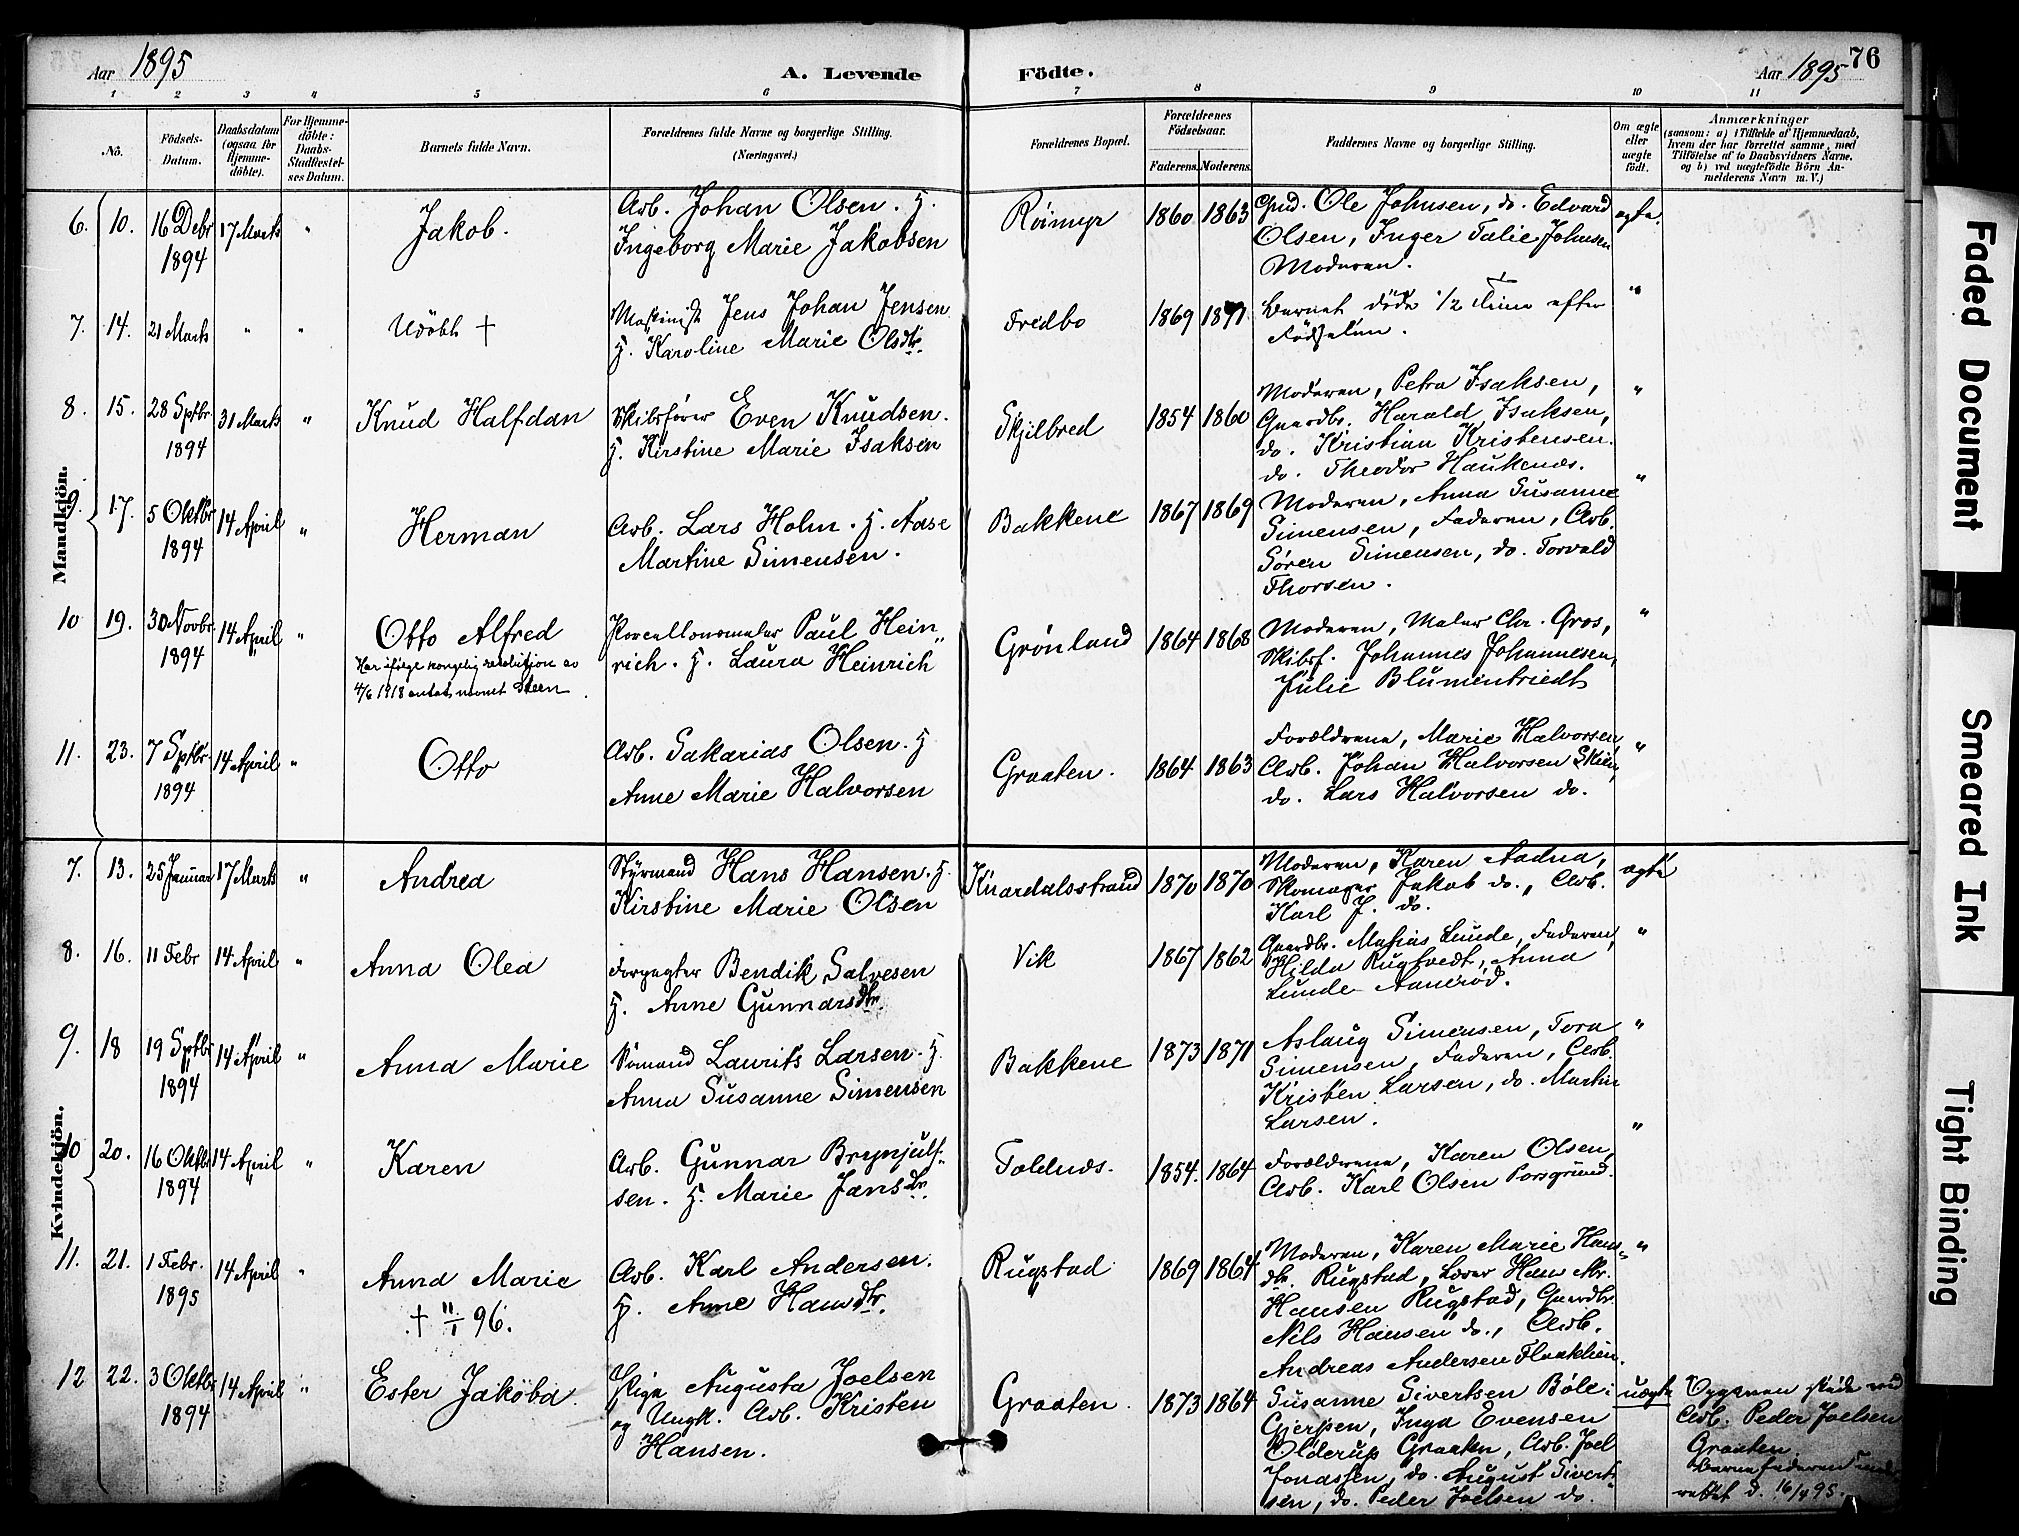 Aar 1895
A. Levende Födte.
Aar 1895
76
1 2 3 4 5 6 7 8 9 10 11
No.
Födsels-Datum.
Daabsdatum (ogsaa for Hjemme-döbte).
For Hjemme-döbte: Daabs-Stadfæstel-ses Datum.
Barnets fulde Navn.
Forældrenes fulde Navne og borgerlige Stilling.
(Næringsvei.)
Forældrenes Bopæl.
Forældrenes Födselsaar.
Faderens. Moderens.
Faddernes Navne og borgerlige Stilling.
Om ægte eller uægte födt.
Anmærkninger
(saasom: a) i Tilfælde af Hjemmedaab,
hvem der har forrettet samme, med
Tilföielse af to Daabsvidners Navne,
og b) ved uægtefödte Börn An-
melderens Navn m. V.)
Mandkjön.
6. 10. 16 Debr 1894 17 Marts " Jakob.
Arb. Johan Olsen. H.
Ingeborg Marie Jakobsen
Röimyr 1860 1863
Gmd. Ole Johnsen, do. Edvard
Olsen, Inger Talie Johnsen
Moderen.
ægte.
7. 14. 21 Marts " " Udöbt †
Maskinist Jens Johan Jensen
H. Karoline Marie Olsdtr.
Fredbo 1869 1871
Barnet döde 1/2 Time efter
Födselen.
"
8. 15. 28 Sptbr. 1894 31 Marts " Knud Halfdan
Skibsförer Even Knudsen.
H. Kirstine Marie Isaksen
Skjilbred 1854 1860
Moderen, Petra Isaksen,
Gaardbr. Harald Isaksen,
do. Kristian Kristensen.
do. Theodor Haukenæs.
"
9. 17. 5 Oktbr 1894 14 April " Herman
Arb. Lars Holm. H. Aase
Martine Simensen.
Bakkene 1867 1869
Moderen, Anna Susanne
Simensen, Faderen, Arb.
Sören Simensen, do. Torvald
Thorsen.
"
10 19. 30 Novbr. 1894 14 April " Otto Alfred
Har ifölge kongelig resolution av
4/6 1918 antat navnet Steen.
Porcellonsmaler Paul Hein„
rich. H. Laura Heinrich
Grönland 1864 1868
Moderen, Maler Chr. Gros,
Skibsf. Johannes Johannesen,
Julie Blumentriedt
"
11. 23. 7 Sptbr 1894 14 April " Otto
Arb. Sakarias Olsen. H
Anne Marie Halvorsen
Graaten. 1864 1863
Forældrene, Marie Halvorsen
Arb. Johan Halvorsen Skien,
do. Lars Halvorsen do.
"
Kvindekjön.
7. 13. 25 Januar 17 Marts " Andrea
Styrmand Hans Hansen. H.
Kirstine Marie Olsen
Knardalsstrand 1870 1870
Moderen, Karen Aadna,
Skomager Jakob do., Arb.
Karl J. do.
ægte
8. 16. 11 Febr 14 April " Anna Olea
Forpagter Bendik Salvesen
H. Anne Gunnarsdtr.
Vik 1867 1862
Gaardbr. Matias Lunde, Faderen,
Hilda Rugtvedt, Anna
Lunde Aaneröd.
"
9. 18 19 Sptbr 1894 14 April " Anna Marie
Sömand Laurits Larsen. H.
Anna Susanne Simensen
Bakkene 1873 1871
Aslaug Simensen, Tora
Simensen, Faderen, Arb.
Kristen Larsen, do. Martin
Larsen.
"
10 20. 16 Oktbr 1894 14 April " Karen
Arb. Gunnar Brynjulf-
sen. H. Marie Jansdtr
Toldnæs. 1854. 1864
Forældrene, Karen Olsen,
Arb. Karl Olsen Porsgrund.
"
11. 21. 1 Febr. 1895 14 April " Anna Marie
† 11/1 96.
Arb. Karl Andersen.
H. Anne Hansdtr.
Rugstad 1869 1864
Moderen, Karen Marie Hans-
dtr. Rugstad, Lærer Hans Abr.
Hansen Rugstad, Gaardbr.
Nils Hansen do., Arb.
Andreas Andersen Flaaklien.
"
12 22. 3 Oktbr 1894 14 April " Ester Jakoba
Pige Augusta Joelsen
og Ungk. Arb. Kristen
Hansen.
Graaten. 1873 1864
Susanne Sivertsen Böle i
Gjerpen, Inga Evensen
Olderup Graaten, Arb. Joel
Jonassen, do. August Sivert-
sen, do. Peder Joelsen do.
uægte
Opgaven skede ved
Arb. Peder Joelsen
Graaten.
Barnefaderen und.
rettet d. 16/4 95.
Faded Document
Smeared Ink
Tight Binding